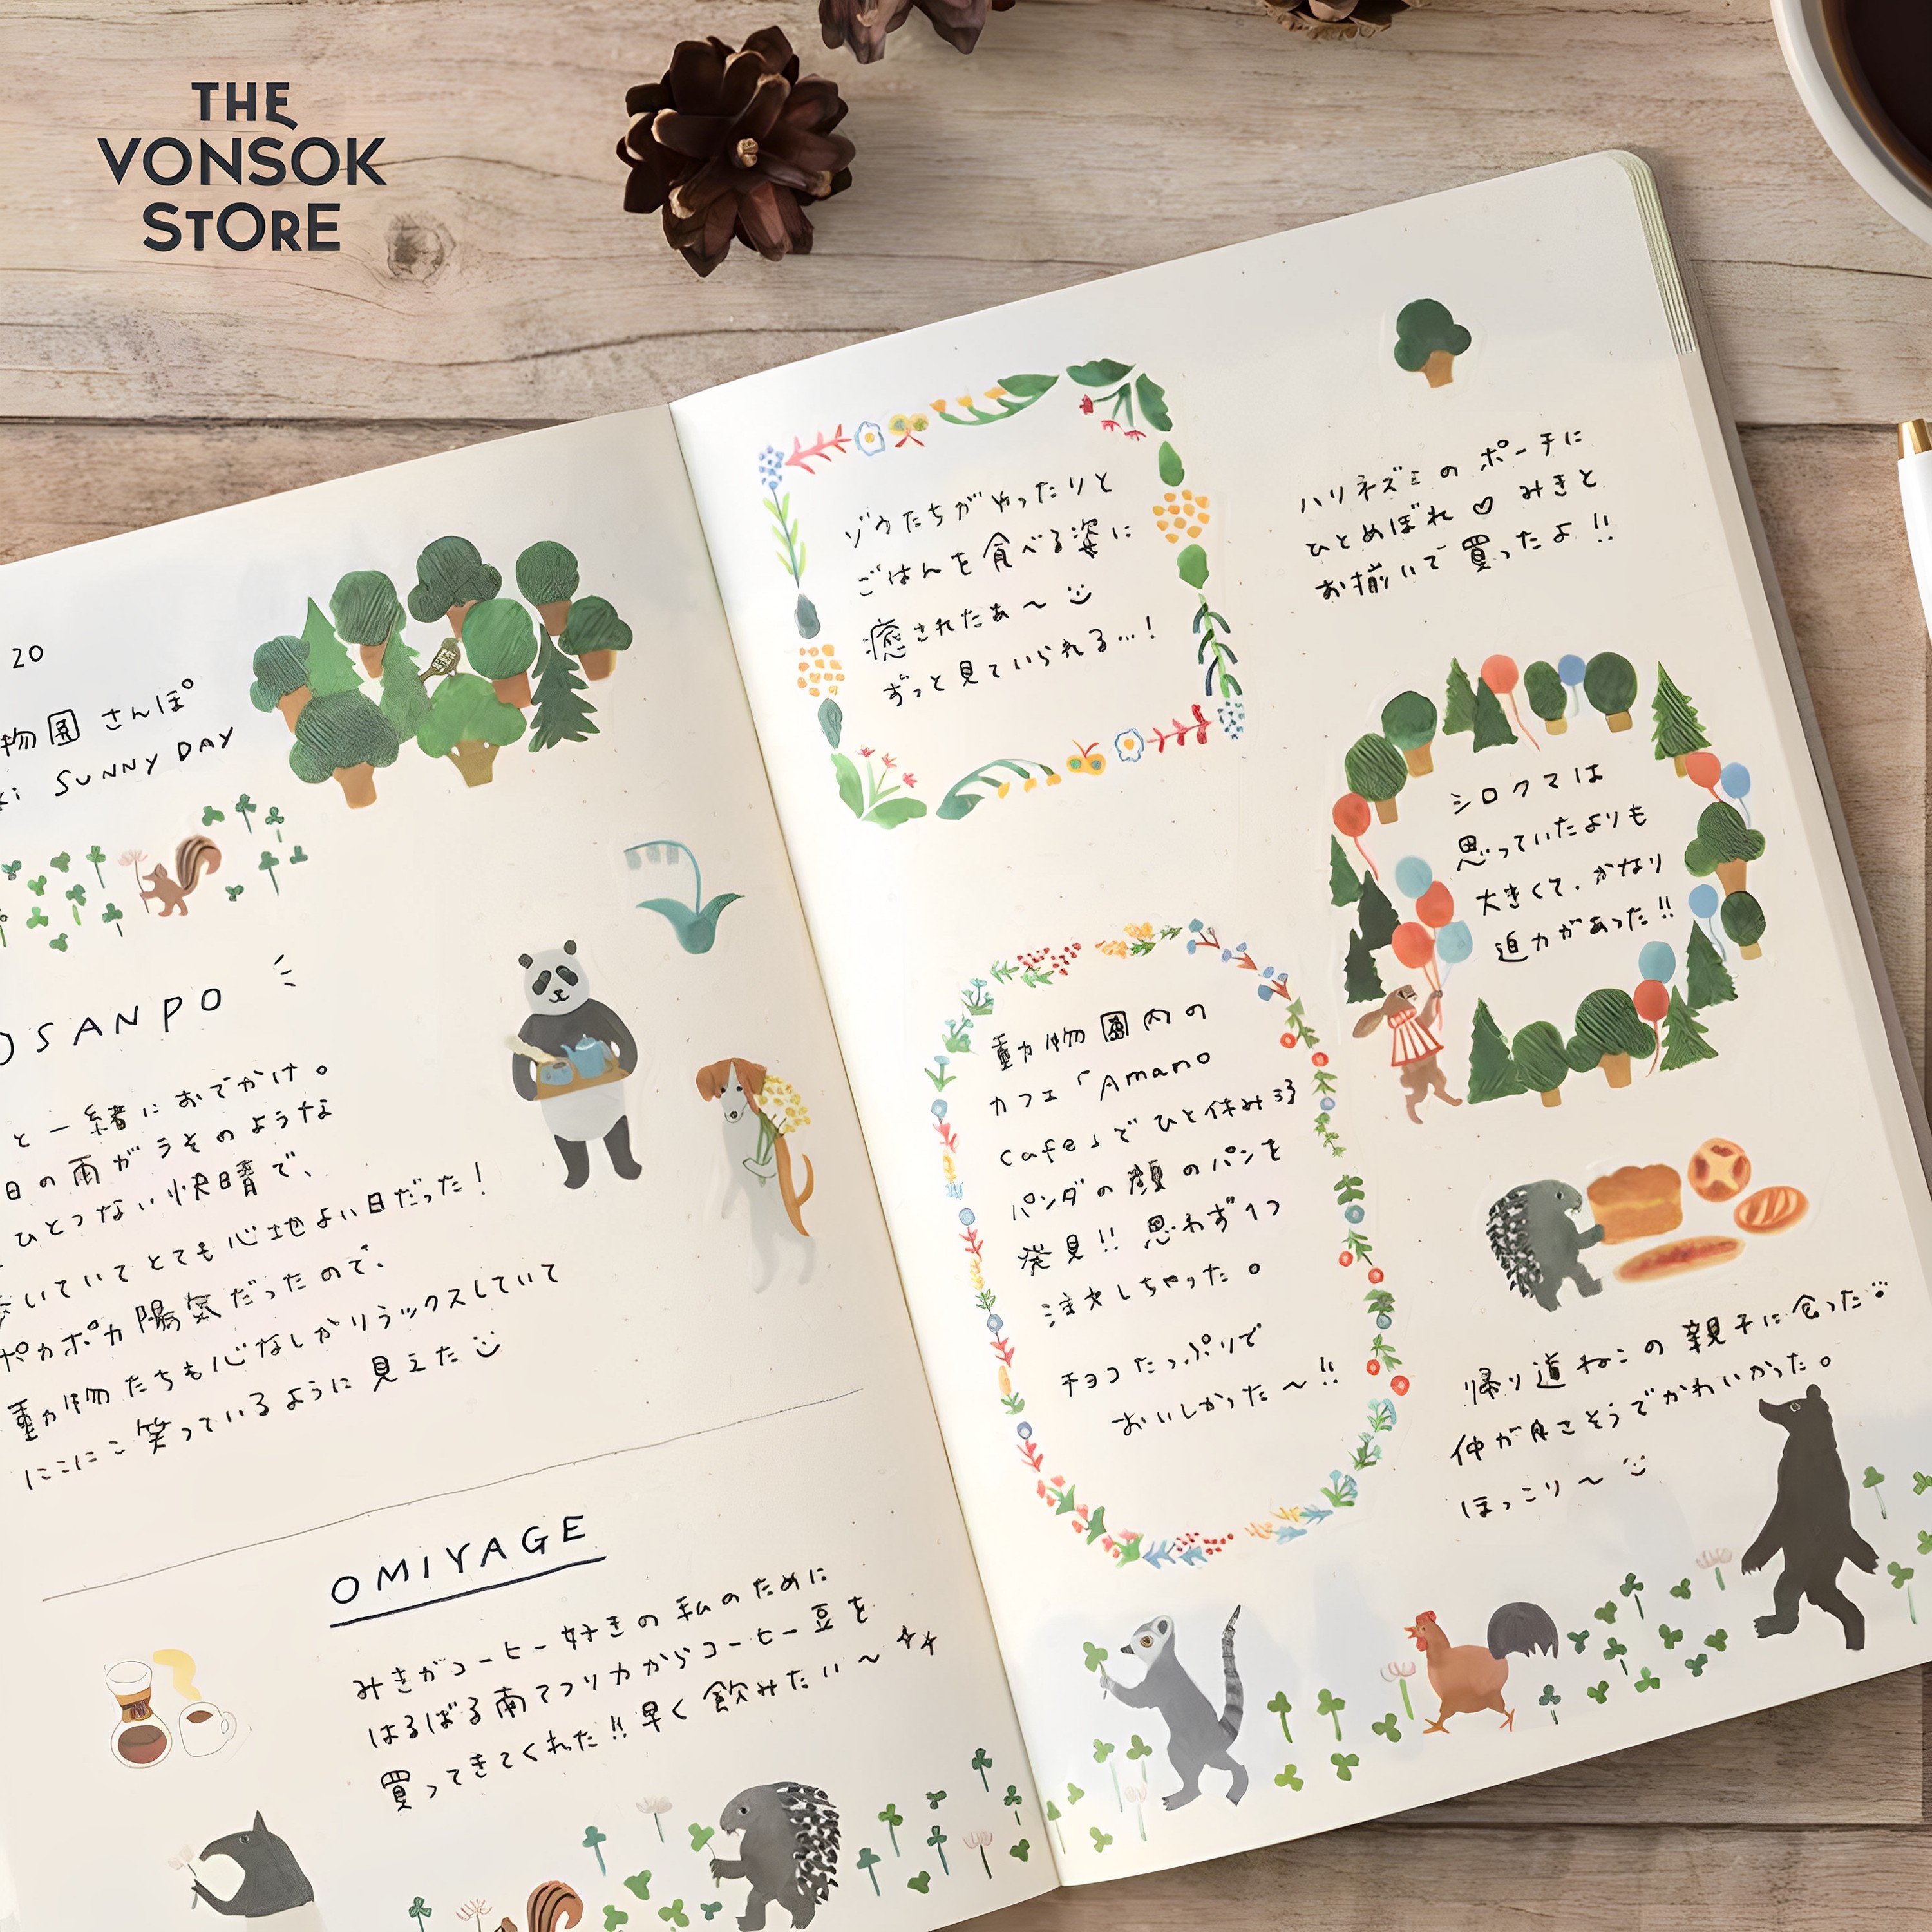 THE
VONSOK
STORE
20
物園 さんぽ
ki SUNNY DAY
OSANPO
と一緒におでかけ。
日の雨がうそのような
ひとつない快晴で、
歩いていてとても心地よい日だった!
ポカポカ陽気だったので、
動物たちも心なしかリラックスしていて
にこにこ笑っているように見えた
OMIYAGE
みきがコーヒー好きの私のために
はるばる南アフリカからコーヒー豆を
買ってきてくれた!!早く飲みたい〜
ゾウたちがゆったりと
ごはんを食べる姿に
癒されたぁ〜
ずっと見ていられる…!
ハリネズミのポーチに
ひとめぼれ♡ みきと
お揃いで買ったよ!!
シロクマは
思っていたよりも
大きくて、かなり
迫力があった!!
動物園内の
カフェ「Amano
cafe」でひと休み
パンダの顔のパンを
発見!! 思わず1つ
注文しちゃった。
チョコたっぷりで
おいしかった〜!!
帰り道ねこの親子に会った
仲が良さそうでかわいかった。
ほっこり〜